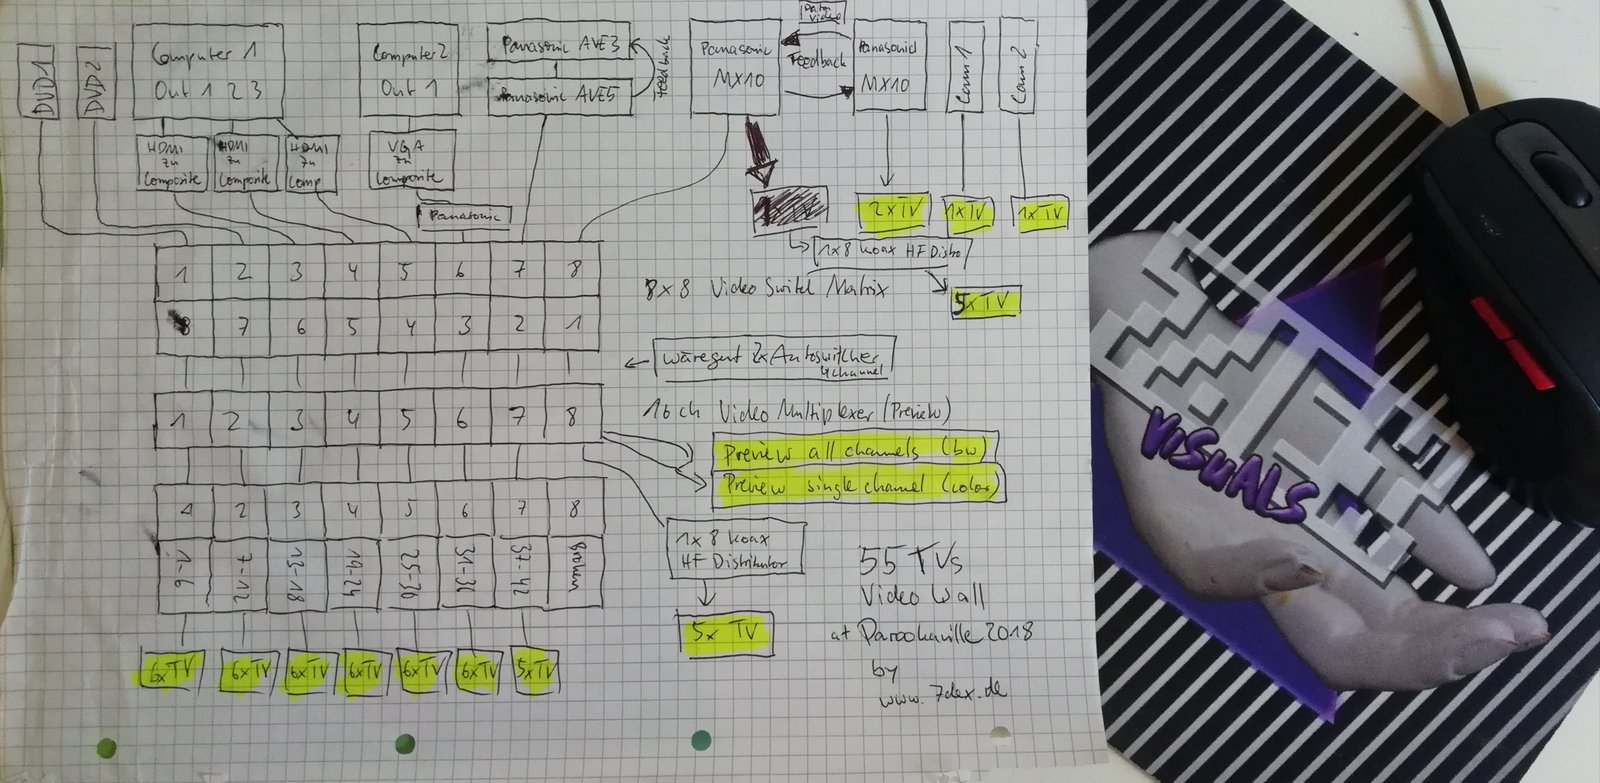 DVD1
DVD2
Computer 1
Out 1 2 3
Computer 2
Out 1
Panasonic AVE3
Panasonic AVE5
Feedback
Panasonic
MX10
Data
Video
Feedback
Panasonic
MX10
Cam 1
Cam 2
HDMI
zu
Composite
HDMI
zu
Composite
HDMI
zu
Comp
VGA
zu
Composite
Panasonic
2xTV
1xTV
1xTV
1x8 Koax HF Distro
5xTV
1 2 3 4 5 6 7 8
8 7 6 5 4 3 2 1
8x8 Video Switch Matrix
2x Autoswitcher
4channel
1 2 3 4 5 6 7 8
16ch Video Multiplexer (Preview)
Preview all channels (bw)
Preview single channel (color)
1 2 3 4 5 6 7 8
1-6
7-12
13-18
19-24
25-30
31-36
37-42
Broken
1x8 Koax
HF Distributor
5x TV
6xTV
6xTV
6xTV
6xTV
6xTV
6xTV
5xTV
55 TVs
Video Wall
at Parookaville 2018
by
www.7dex.de
7DEX
ViSUALS